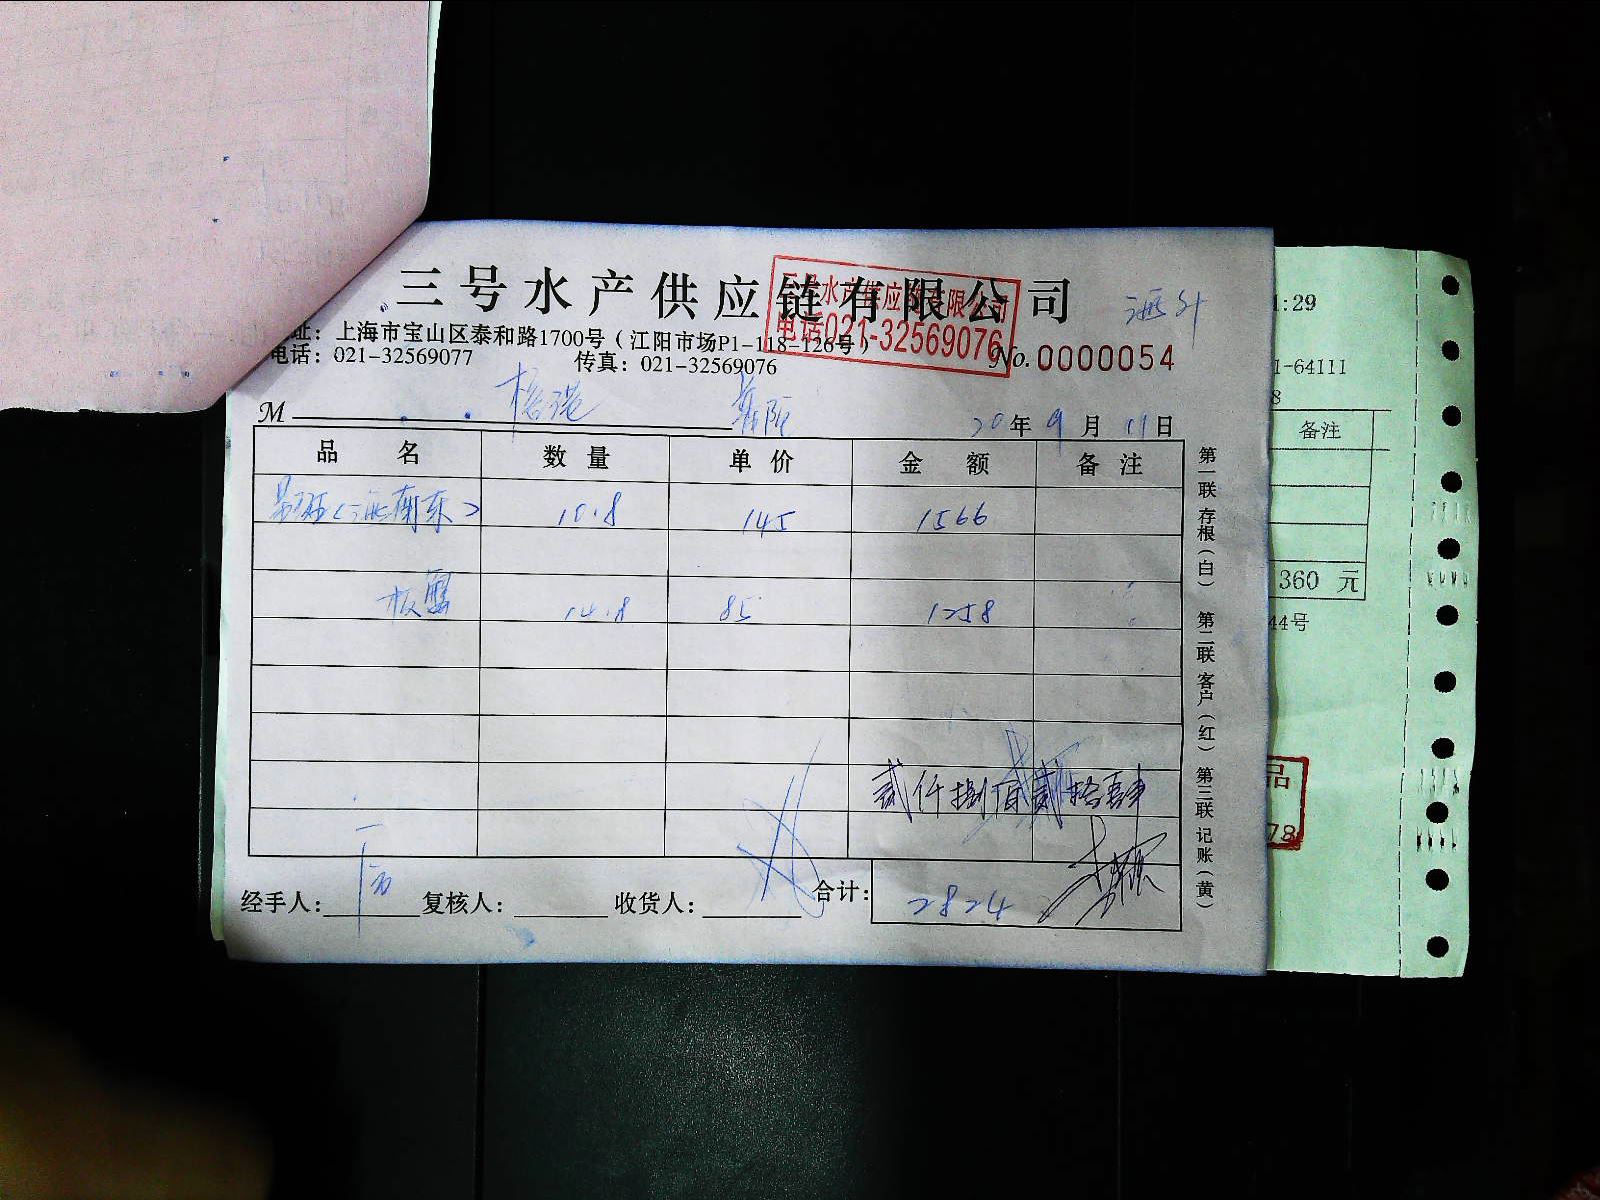 三号水产供应链有限公司
三号水产供应链有限公司
电话021-32569076
址：上海市宝山区泰和路1700号（江阳市场P1-118-126号）
电话：021-32569077 传真：021-32569076
No.0000054
M
20年9月11日
品名 数量 单价 金额 备注
10.8 145 1566
板蟹 14.8 85 1258
贰仟捌佰贰拾肆
经手人： 复核人： 收货人： 合计： 2824
第一联存根（白） 第二联客户（红） 第三联记账（黄）
1:29
1-64111
8
备注
360 元
44号
品
78